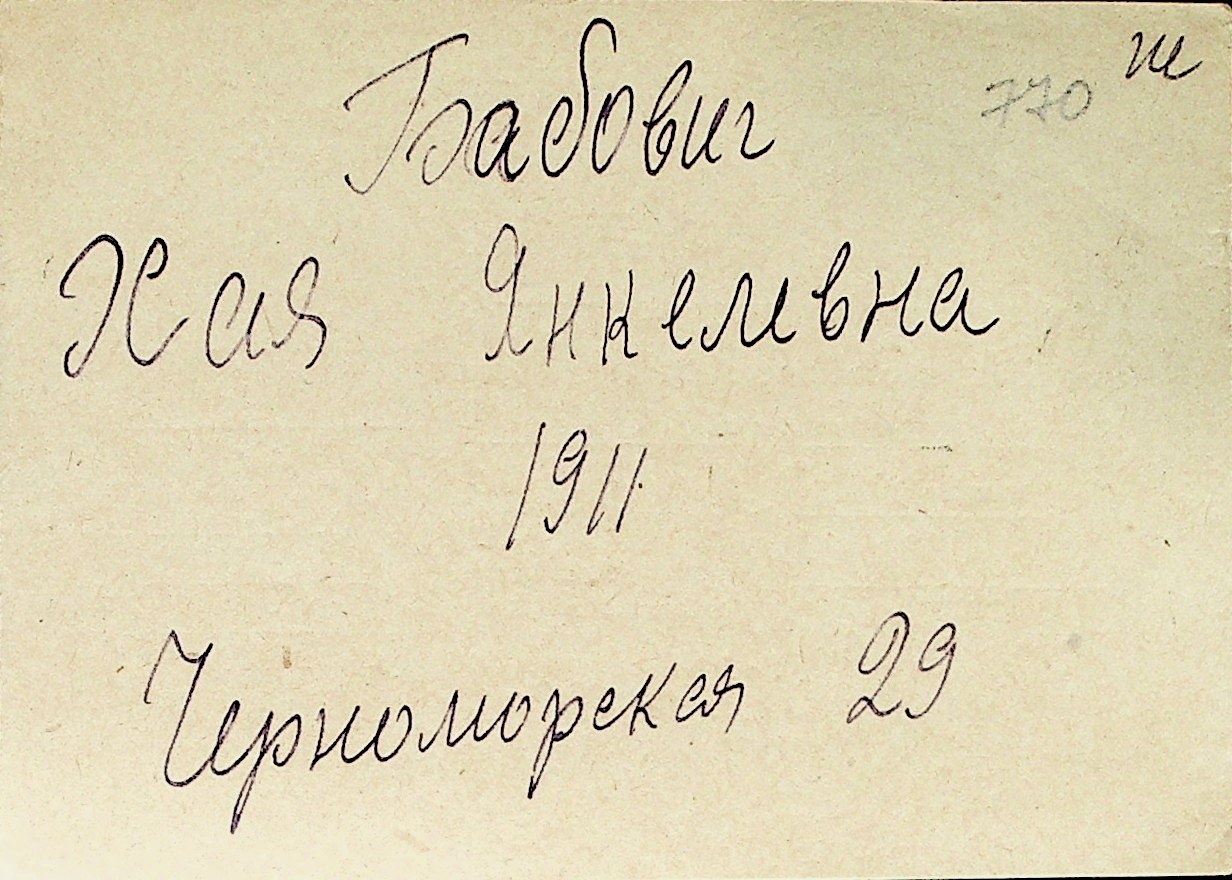 770 ш
Бабович
Хая Янкелевна
1911
Черноморская 29